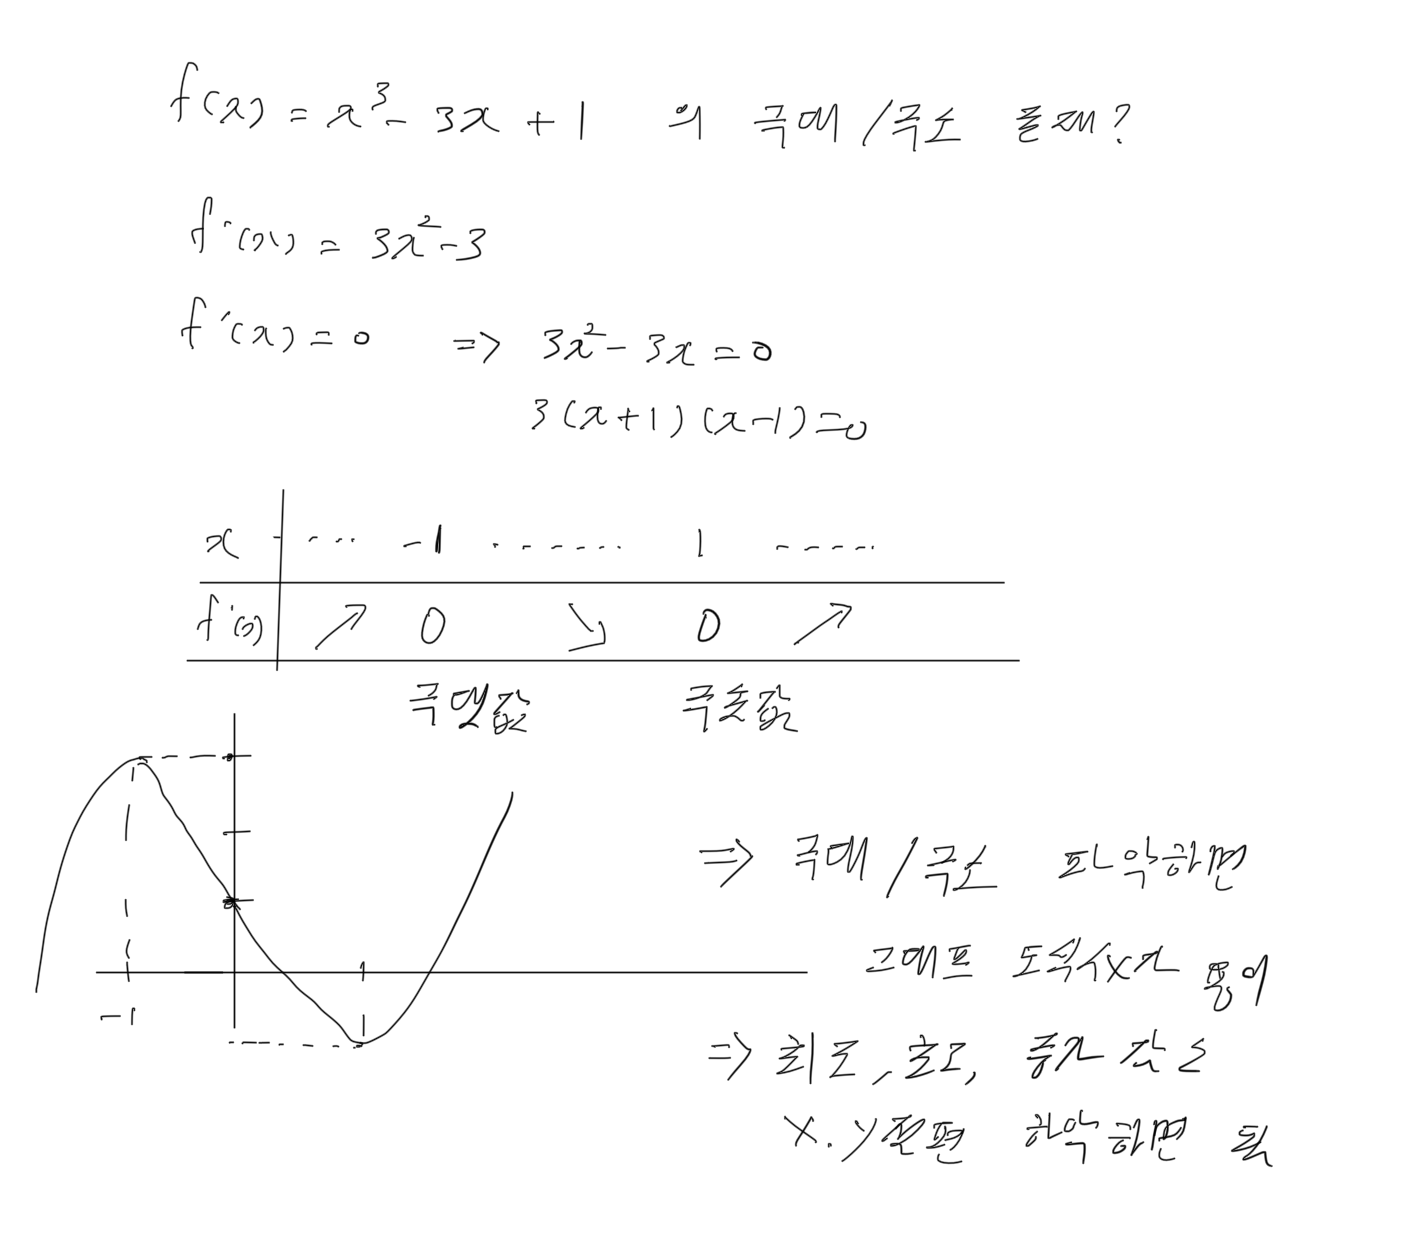 f(x) = x³ - 3x + 1 의 극대/극소 존재?
f'(x) = 3x² - 3
f'(x) = 0 => 3x² - 3x = 0
3(x+1)(x-1) = 0
x ... -1 ....... 1 .....
f'(x) ↗ 0 ↘ 0 ↗
극댓값 극솟값
-1
=> 극대/극소 파악하면
그래프 도식화가 용이
=> 최대, 최소, 증가 감소
x.y절편 파악하면 됨